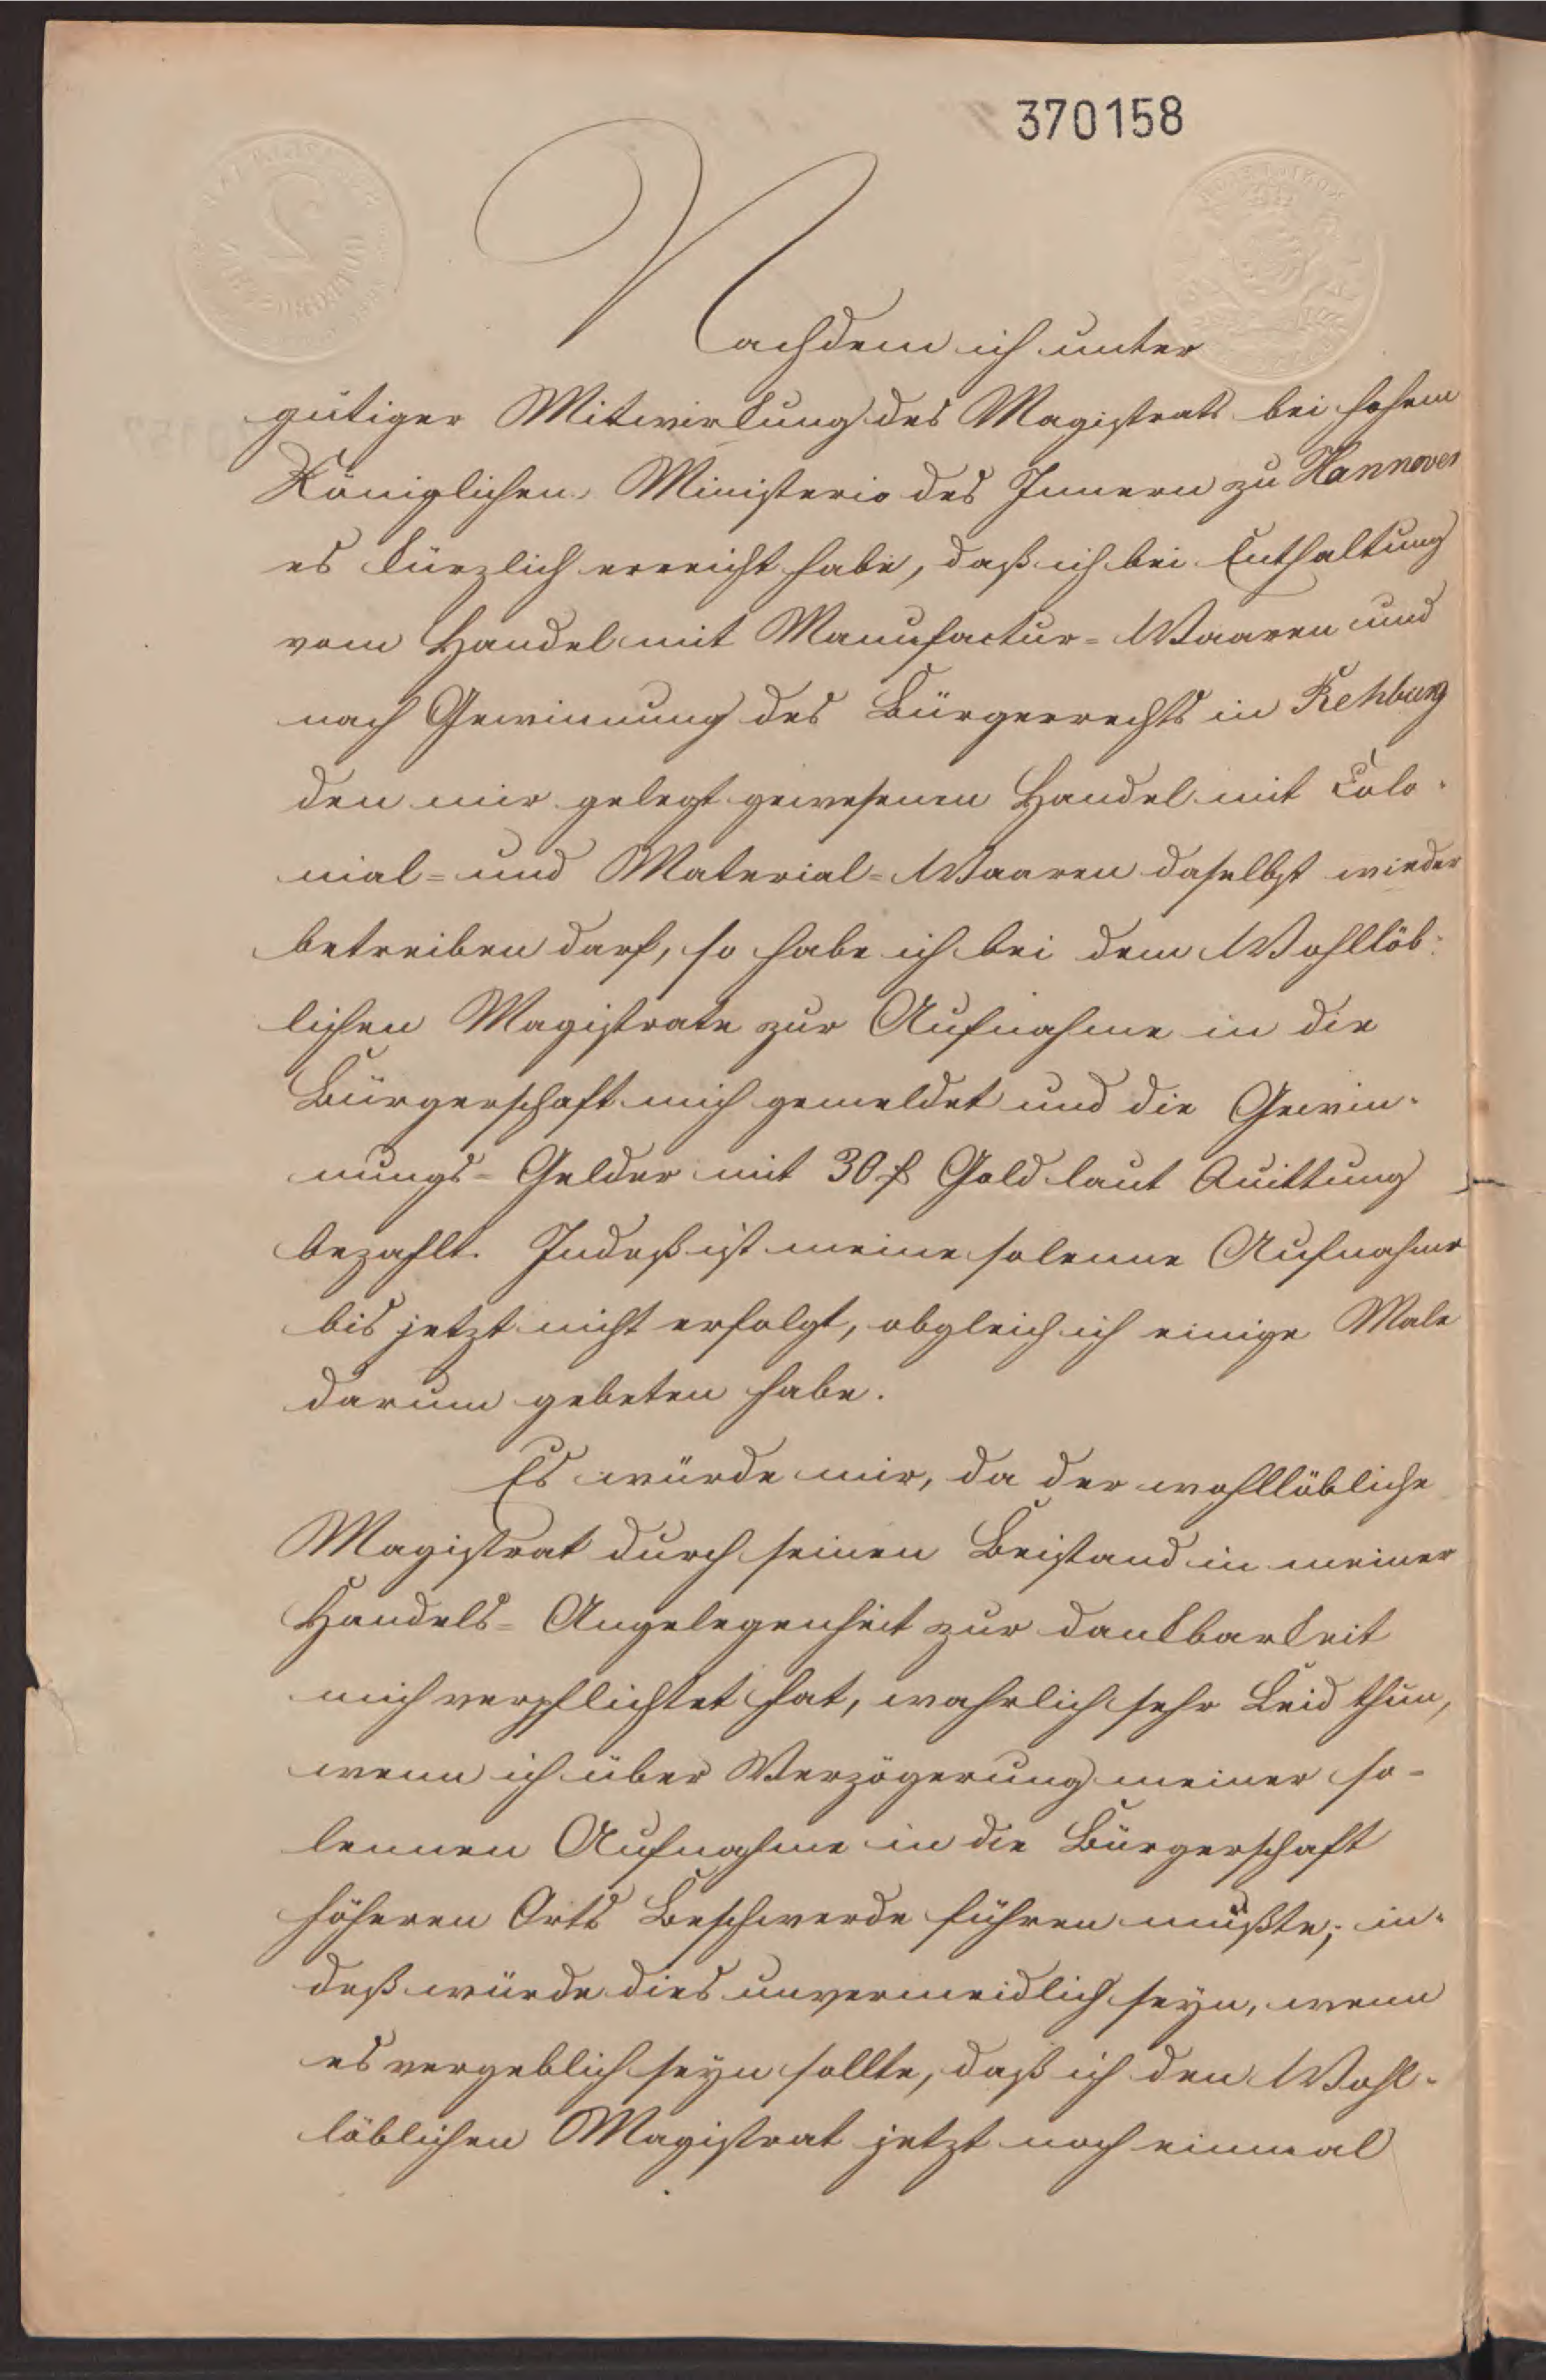 370158
Nachdem ich unter
gütiger Mitwirkung des Magistrats bei hohem
Königlichen Ministerio des Innern zu Hannover
es kürzlich erreicht habe, daß ich bei Enthaltung
vom Handel mit Manufactur=Waaren und
nach Gewinnung des Bürgerrechts in Rehburg
den mir gelegt gewesenen Handel mit Colo-
nial= und Material=Waaren daselbst wieder
betreiben darf, so habe ich bei dem Wohllöb-
lichen Magistrate zur Aufnahme in die
Bürgerschaft mich gemeldet und die Gewin-
nungs=Gelder mit 30 ₰ Gold laut Quittung
bezahlt. Indeß ist meine solenne Aufnahme
bis jetzt nicht erfolgt, obgleich ich einige Male
darum gebeten habe.
Es würde mir, da der wohllöbliche
Magistrat durch seinen Beistand in meiner
Handels=Angelegenheit zur Dankbarkeit
mich verpflichtet hat, wahrlich sehr Leid thun,
wenn ich über Verzögerung meiner so-
lennen Aufnahme in die Bürgerschaft
höheren Orts Beschwerde führen mußte; in-
deß würde dies unvermeidlich seyn, wenn
es vergeblich seyn sollte, daß ich den Wohl-
löblichen Magistrat jetzt noch einmal